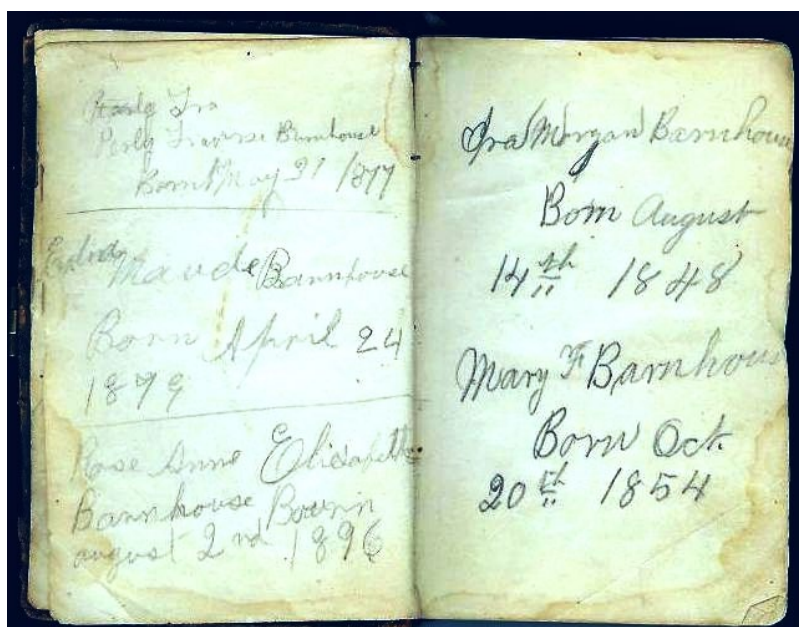 Ira
Perly Traverse Barnhouse
Born May 31 1877
Maude Barnhouse
Born April 24
1879
Rose Anne Elisabeth
Barnhouse Bournin
august 2 nd 1896
Ira Morgan Barnhouse
Born August
14th 1848
Mary F Barnhous
Born Oct
20th 1854